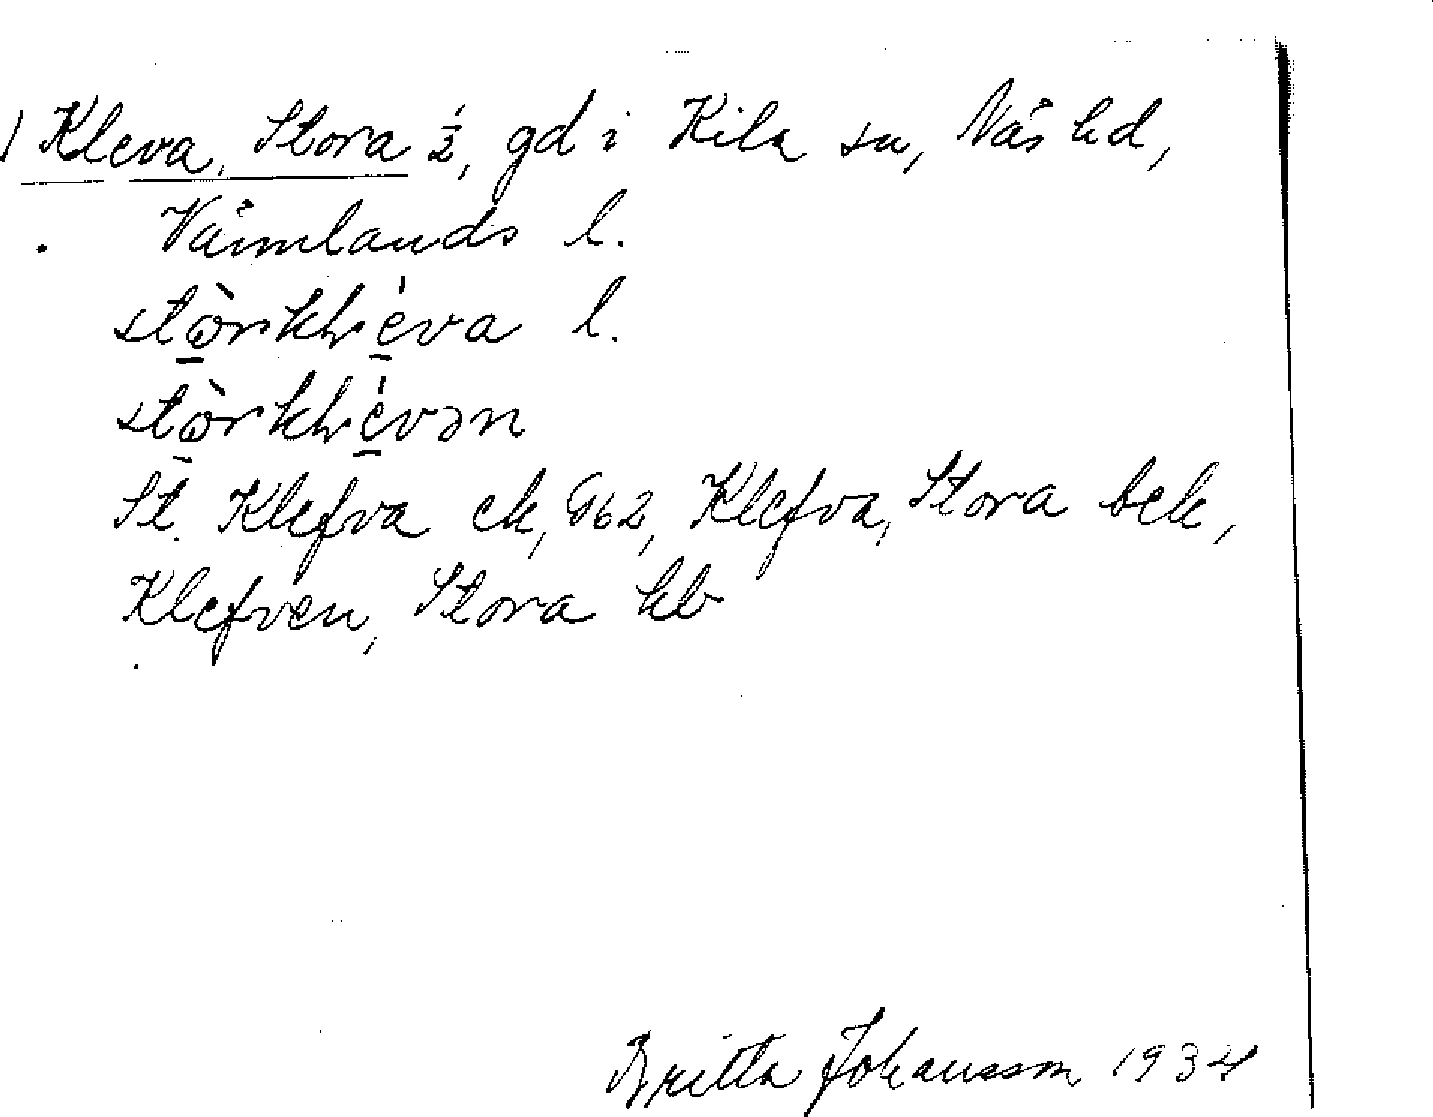 1 Kleva, Stora ½, gd i Kila sn, Näs hd,
Värmlands l.
stòrkléva l.
stòrklévən
St. Klefva ek, G62, Klefva, Stora bek,
Klefven, Stora kb
Britta Johansson 1934